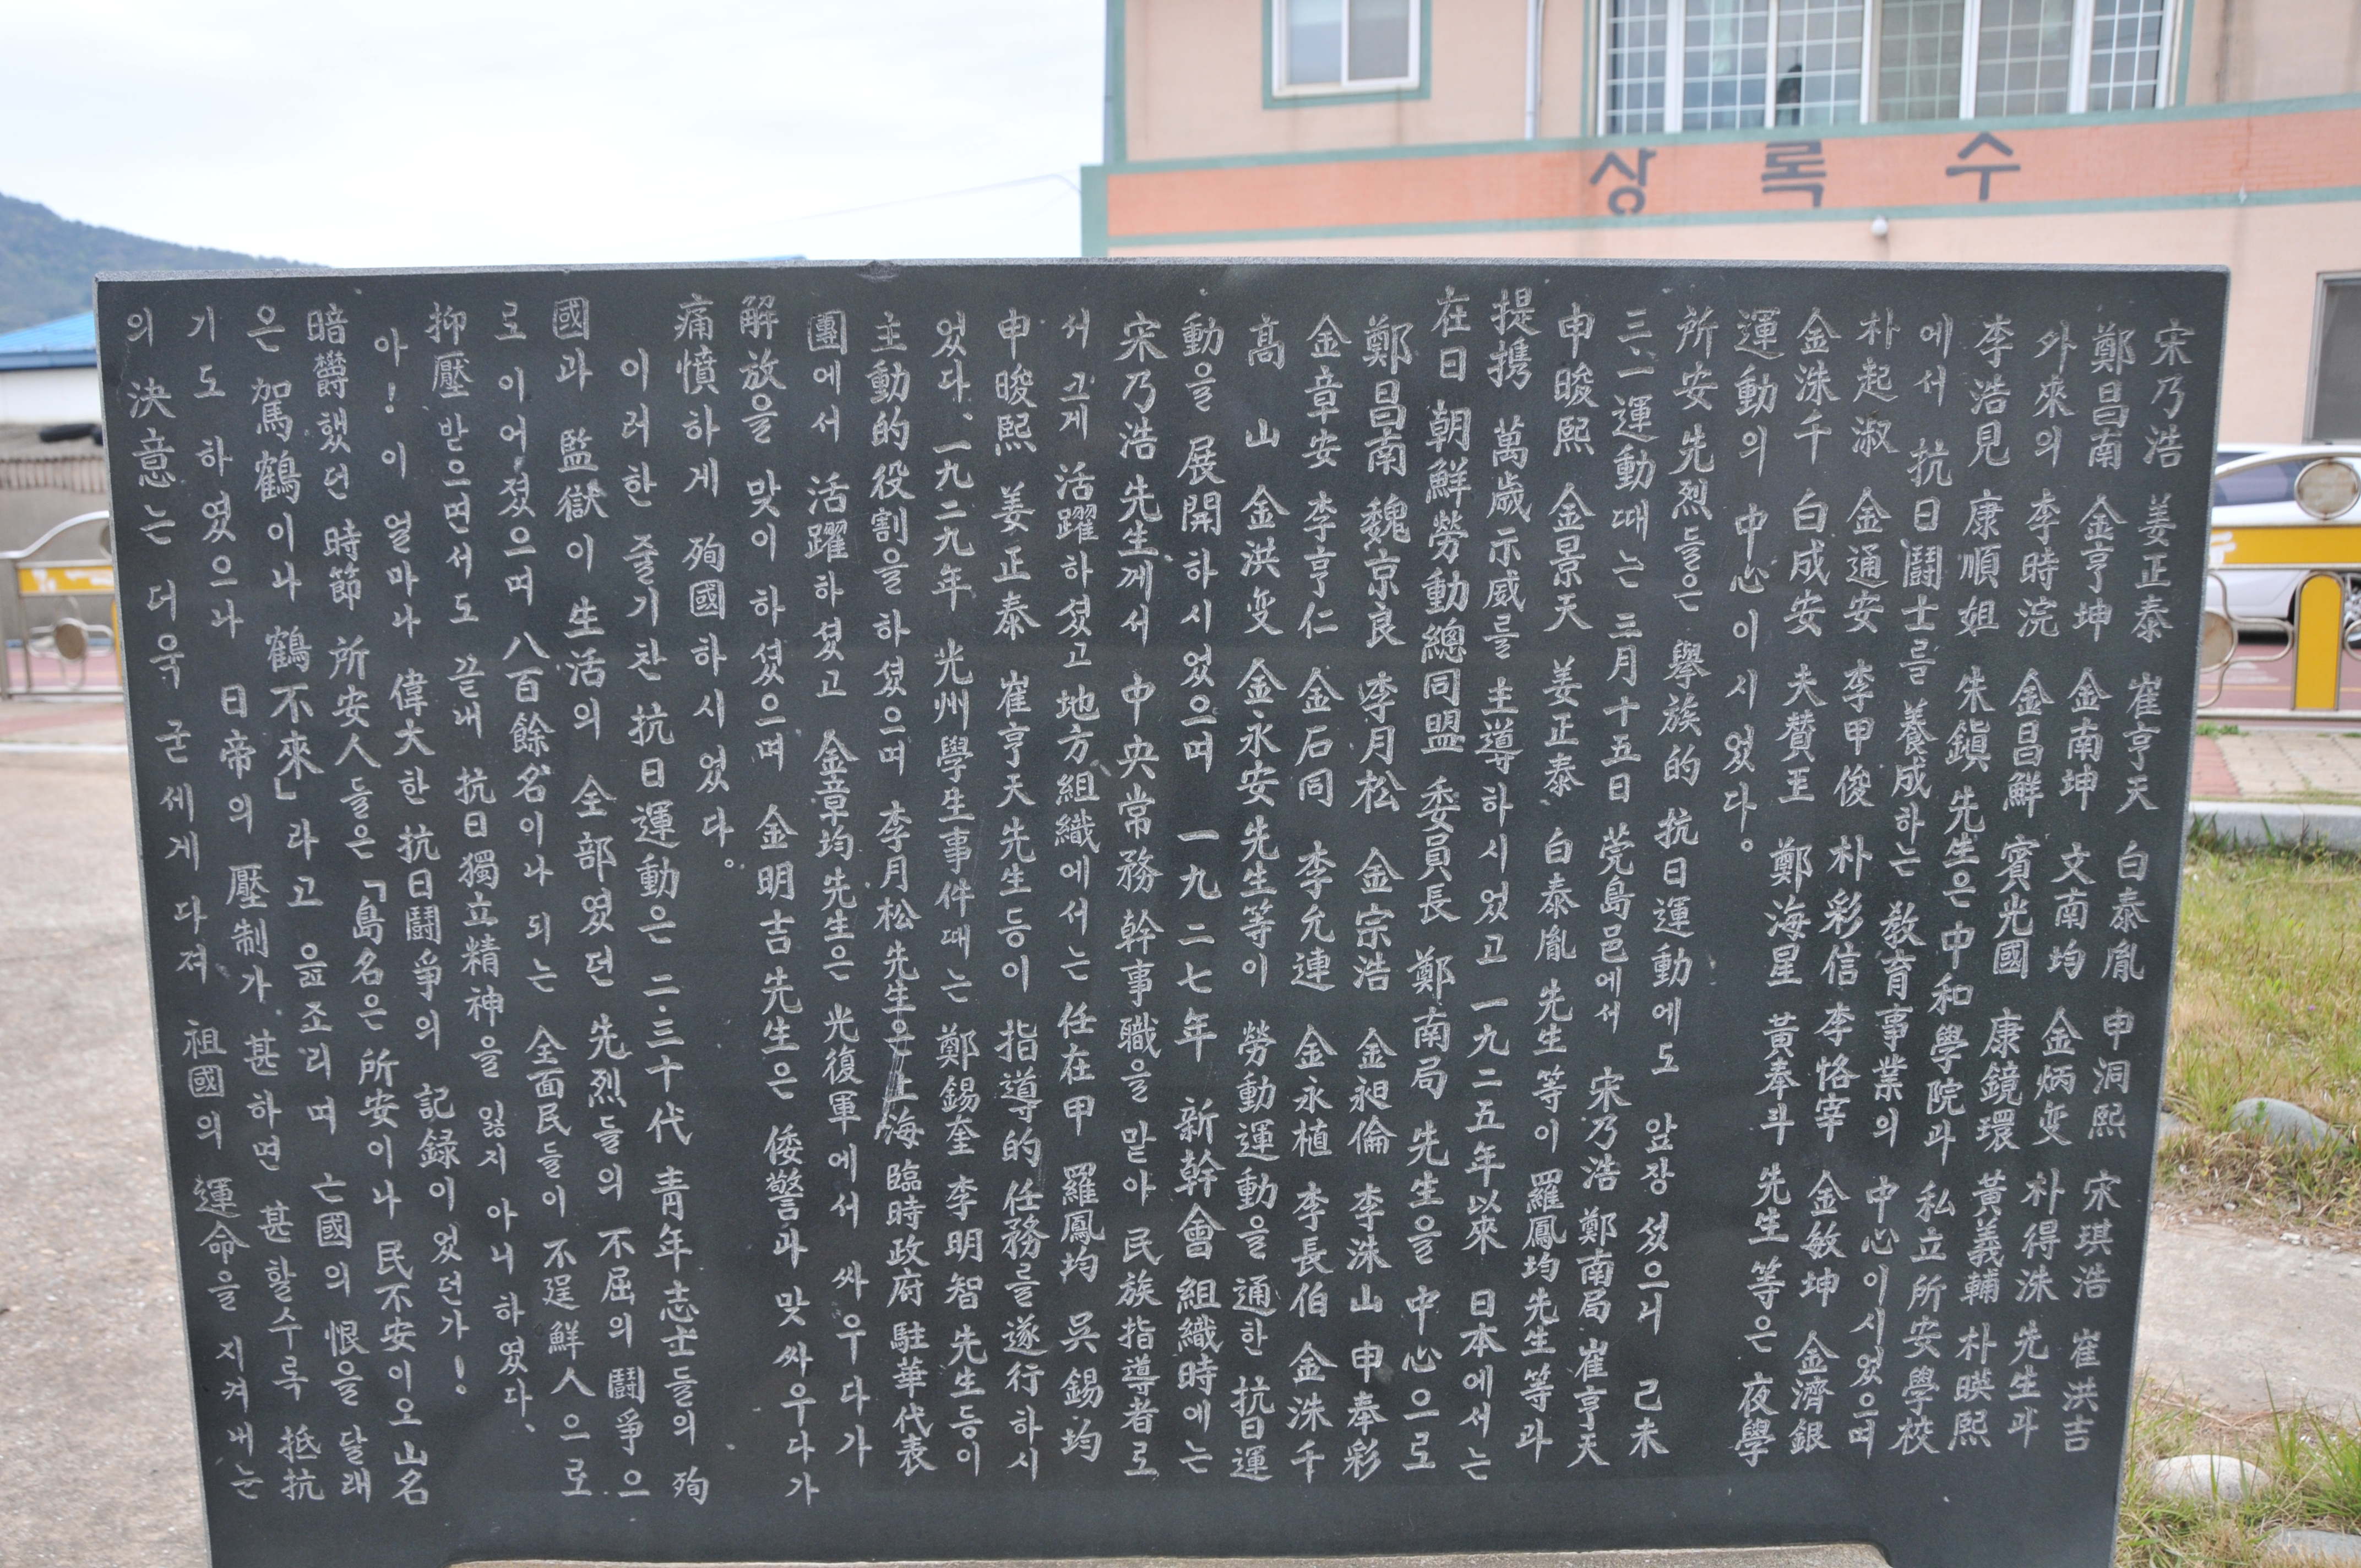 상록수
宋乃浩 姜正泰 崔亨天 白泰胤 申洞熙 宋琪浩 崔洪吉
鄭昌南 金亨坤 金南坤 文南均 金炳 朴得洙 先生과
外來의 李時浣 金昌鮮 賓光國 康鏡環 黃義輔 朴暎熙
李浩見 康順姐 朱鎭 先生은 中和學院과 私立所安學校
에서 抗日鬪士를 養成하는 敎育事業의 中心이시었으며
朴起淑 金通安 李甲俊 朴彩信 李恪宰 金敏坤 金濟銀
金洙千 白成安 夫賛王 鄭海星 黃奉斗 先生 等은 夜學
運動의 中心이시었다。
所安先烈들은 擧族的 抗日運動에도 앞장섰으니 己未
三一運動때는 三月十五日 莞島邑에서 宋乃浩 鄭南局 崔亨天
申晙熙 金景天 姜正泰 白泰胤 先生等이 羅鳳均先生等과
提携 萬歲示威를 主導하시었고 一九二五年以來 日本에서는
在日 朝鮮勞動總同盟 委員長 鄭南局 先生을 中心으로
鄭昌南 魏京良 李月松 金宗浩 金昶倫 李洙山 申奉彩
金章安 李亨仁 金石同 李允連 金永植 李長伯 金洙千
高山 金洪 金永安先生等이 勞動運動을 通한 抗日運
動을 展開하시었으며 一九二七年 新幹會 組織時에는
宋乃浩 先生께서 中央常務幹事職을 맡아 民族指導者로
서 크게 活躍하셨고 地方組織에서는 任在甲 羅鳳均 吳錫均
申晙熙 姜正泰 崔亨天先生等이 指導的 任務를 遂行하시
었다、一九二九年 光州學生事件때는 鄭錫奎 李明智 先生등이
主動的役割을 하셨으며 李月松先生은 上海臨時政府 駐華代表
團에서 活躍하셨고 金章均先生은 光復軍에서 싸우다가
解放을 맞이하셨으며 金明吉先生은 倭警과 맞싸우다가
痛憤하게 殉國하시었다。
이러한 줄기찬 抗日運動은 二、三十代 靑年志士들의 殉
國과 監獄이 生活의 全部였던 先烈들의 不屈의 鬪爭으
로 이어졌으며 八百餘名이나 되는 全面民들이 不逞鮮人으로
抑壓받으면서도 끝내 抗日獨立精神을 잃지 아니하였다、
아! 이 얼마나 偉大한 抗日鬪爭의 記録이었던가!
暗欝했던 時節 所安人들은「島名은 所安이나 民不安이오 山名
은 駕鶴이나 鶴不來」라고 읊조리며 亡國의 恨을 달래
기도 하였으나 日帝의 壓制가 甚하면 甚할수록 抵抗
의 決意는 더욱 굳세게 다져 祖國의 運命을 지켜내는